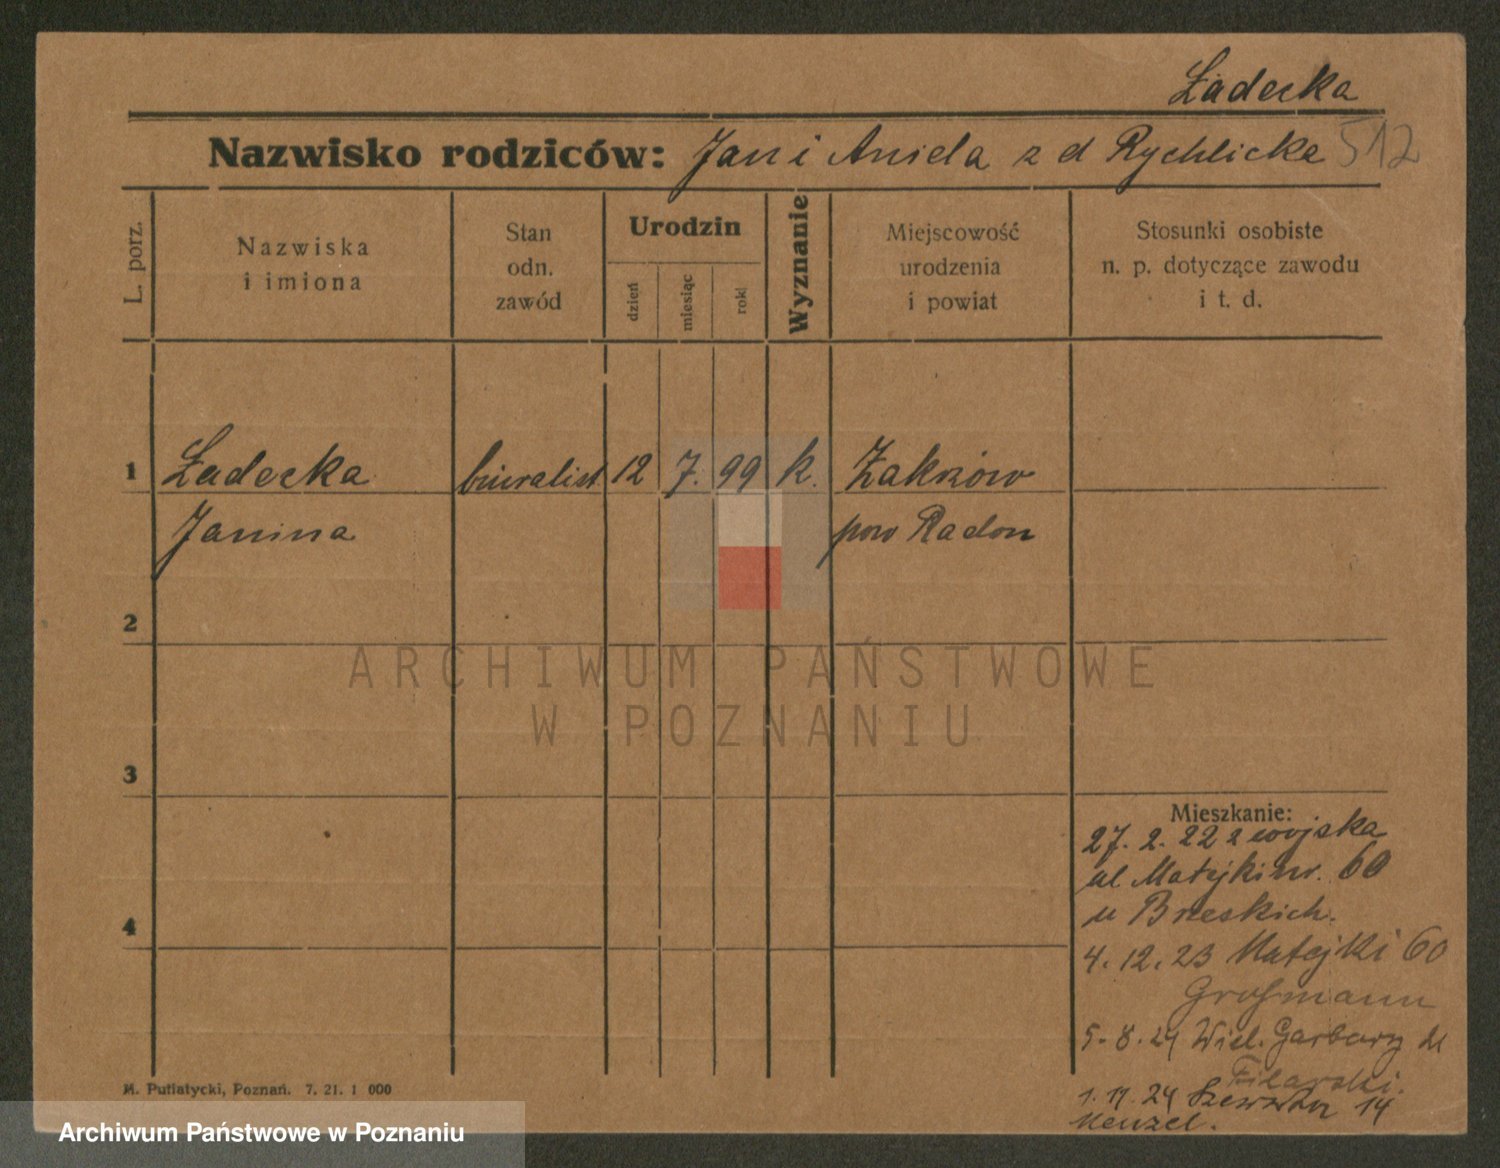 Ładecka
Nazwisko rodziców: Jan i Aniela z d Rychlicka 512
L. porz.
Nazwiska
i imiona
Stan
odn.
zawód
Urodzin
dzień
miesiąc
rok
Wyznanie
Miejscowość
urodzenia
i powiat
Stosunki osobiste
n. p. dotyczące zawodu
i t. d.
1 Ładecka biuralist 12 7. 99 k. Zakrzów
Janina pow Radom
2
3
4
Mieszkanie:
27. 2. 22 z wojska
ul Matejki nr. 60
u Breskich.
4. 12. 23 Matejki 60
Großmann
5. 8. 24 Wiel. Garbary
Filarski.
1. 11. 24 Szewska 14
Menzel.
M. Putiatycki, Poznań. 7. 21. 1 000
ARCHIWUM PAŃSTWOWE
W POZNANIU
Archiwum Państwowe w Poznaniu